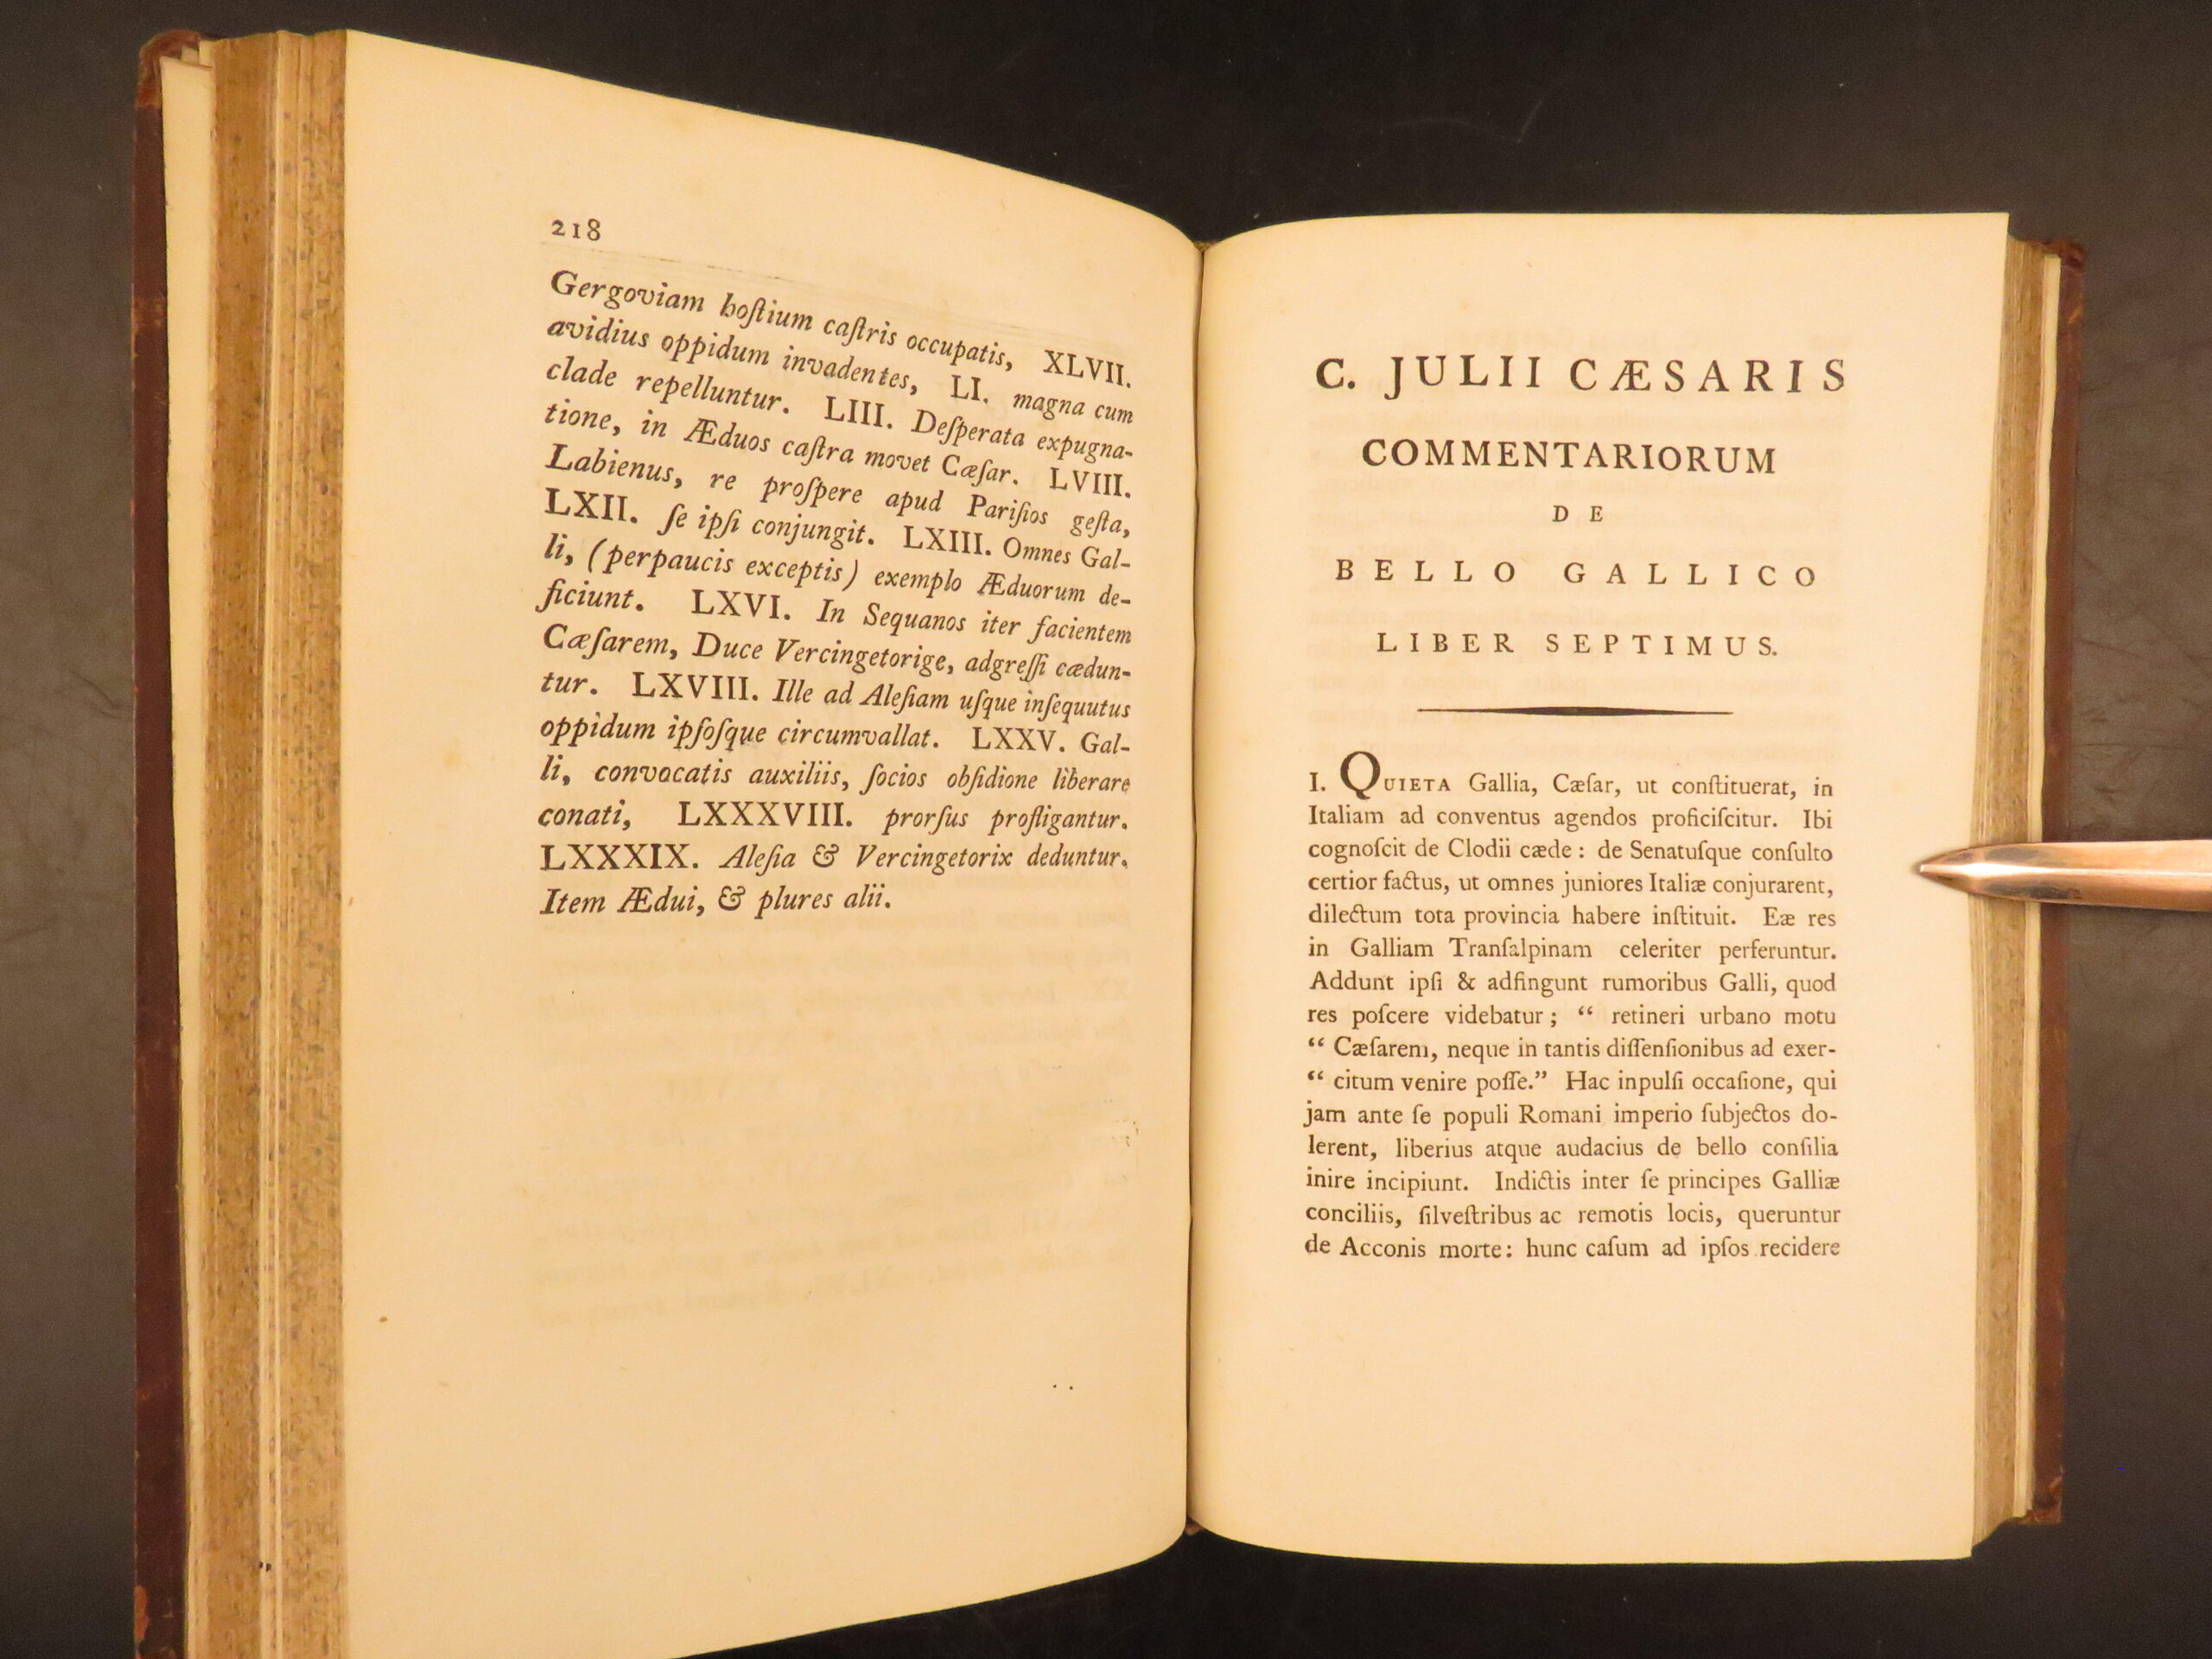 218
Gergoviam hoſtium caſtris occupatis, XLVII.
avidius oppidum invadentes, LI. magna cum
clade repelluntur. LIII. Deſperata expugna-
tione, in Æduos caſtra movet Cæſar. LVIII.
Labienus, re proſpere apud Pariſios geſta,
LXII. ſe ipſi conjungit. LXIII. Omnes Gal-
li, (perpaucis exceptis) exemplo Æduorum de-
ficiunt. LXVI. In Sequanos iter facientem
Cæſarem, Duce Vercingetorige, adgreſſi cædun-
tur. LXVIII. Ille ad Aleſiam uſque inſequutus
oppidum ipſoſque circumvallat. LXXV. Gal-
li, convocatis auxiliis, ſocios obſidione liberare
conati, LXXXVIII. prorſus profligantur.
LXXXIX. Aleſia & Vercingetorix deduntur.
Item Ædui, & plures alii.
C. JULII CÆSARIS
COMMENTARIORUM
DE
BELLO GALLICO
LIBER SEPTIMUS.
I. QUIETA Gallia, Cæſar, ut conſtituerat, in
Italiam ad conventus agendos proficiſcitur. Ibi
cognoſcit de Clodii cæde : de Senatuſque conſulto
certior factus, ut omnes juniores Italiæ conjurarent,
dilectum tota provincia habere inſtituit. Eæ res
in Galliam Tranſalpinam celeriter perferuntur.
Addunt ipſi & adfingunt rumoribus Galli, quod
res poſcere videbatur ; “ retineri urbano motu
“ Cæſarem, neque in tantis diſſenſionibus ad exer-
“ citum venire poſſe.” Hac inpulſi occaſione, qui
jam ante ſe populi Romani imperio ſubjectos do-
lerent, liberius atque audacius de bello conſilia
inire incipiunt. Indictis inter ſe principes Galliæ
conciliis, ſilveſtribus ac remotis locis, queruntur
de Acconis morte : hunc caſum ad ipſos recidere